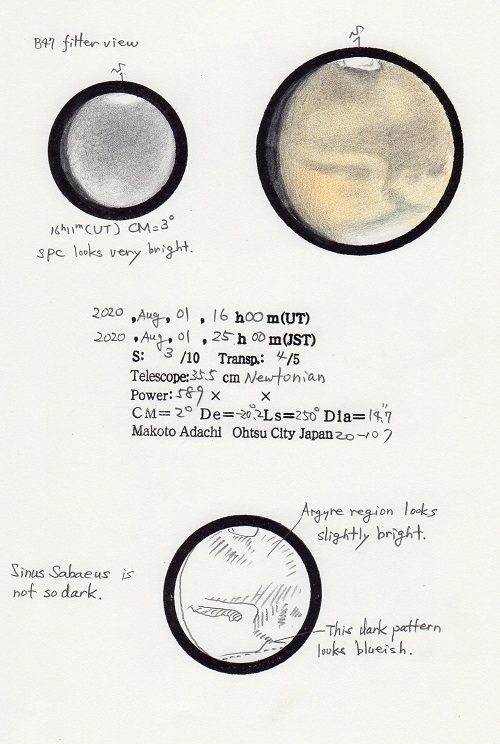 B47 filter view
S
S
16h11m(UT) CM=3°
spc looks very bright.
2020 , Aug, 01 , 16 h00 m(UT)
2020 , Aug, 01 , 25 h 00 m(JST)
S: 3 /10 Transp.: 4/5
Telescope:35.5 cm Newtonian
Power: 589 × ×
CM= 2° De=-20.°2 Ls=250° Dia=14.″7
Makoto Adachi Ohtsu City Japan 20-107
Argyre region looks
slightly bright.
Sinus Sabaeus is
not so dark.
This dark pattern
looks blueish.